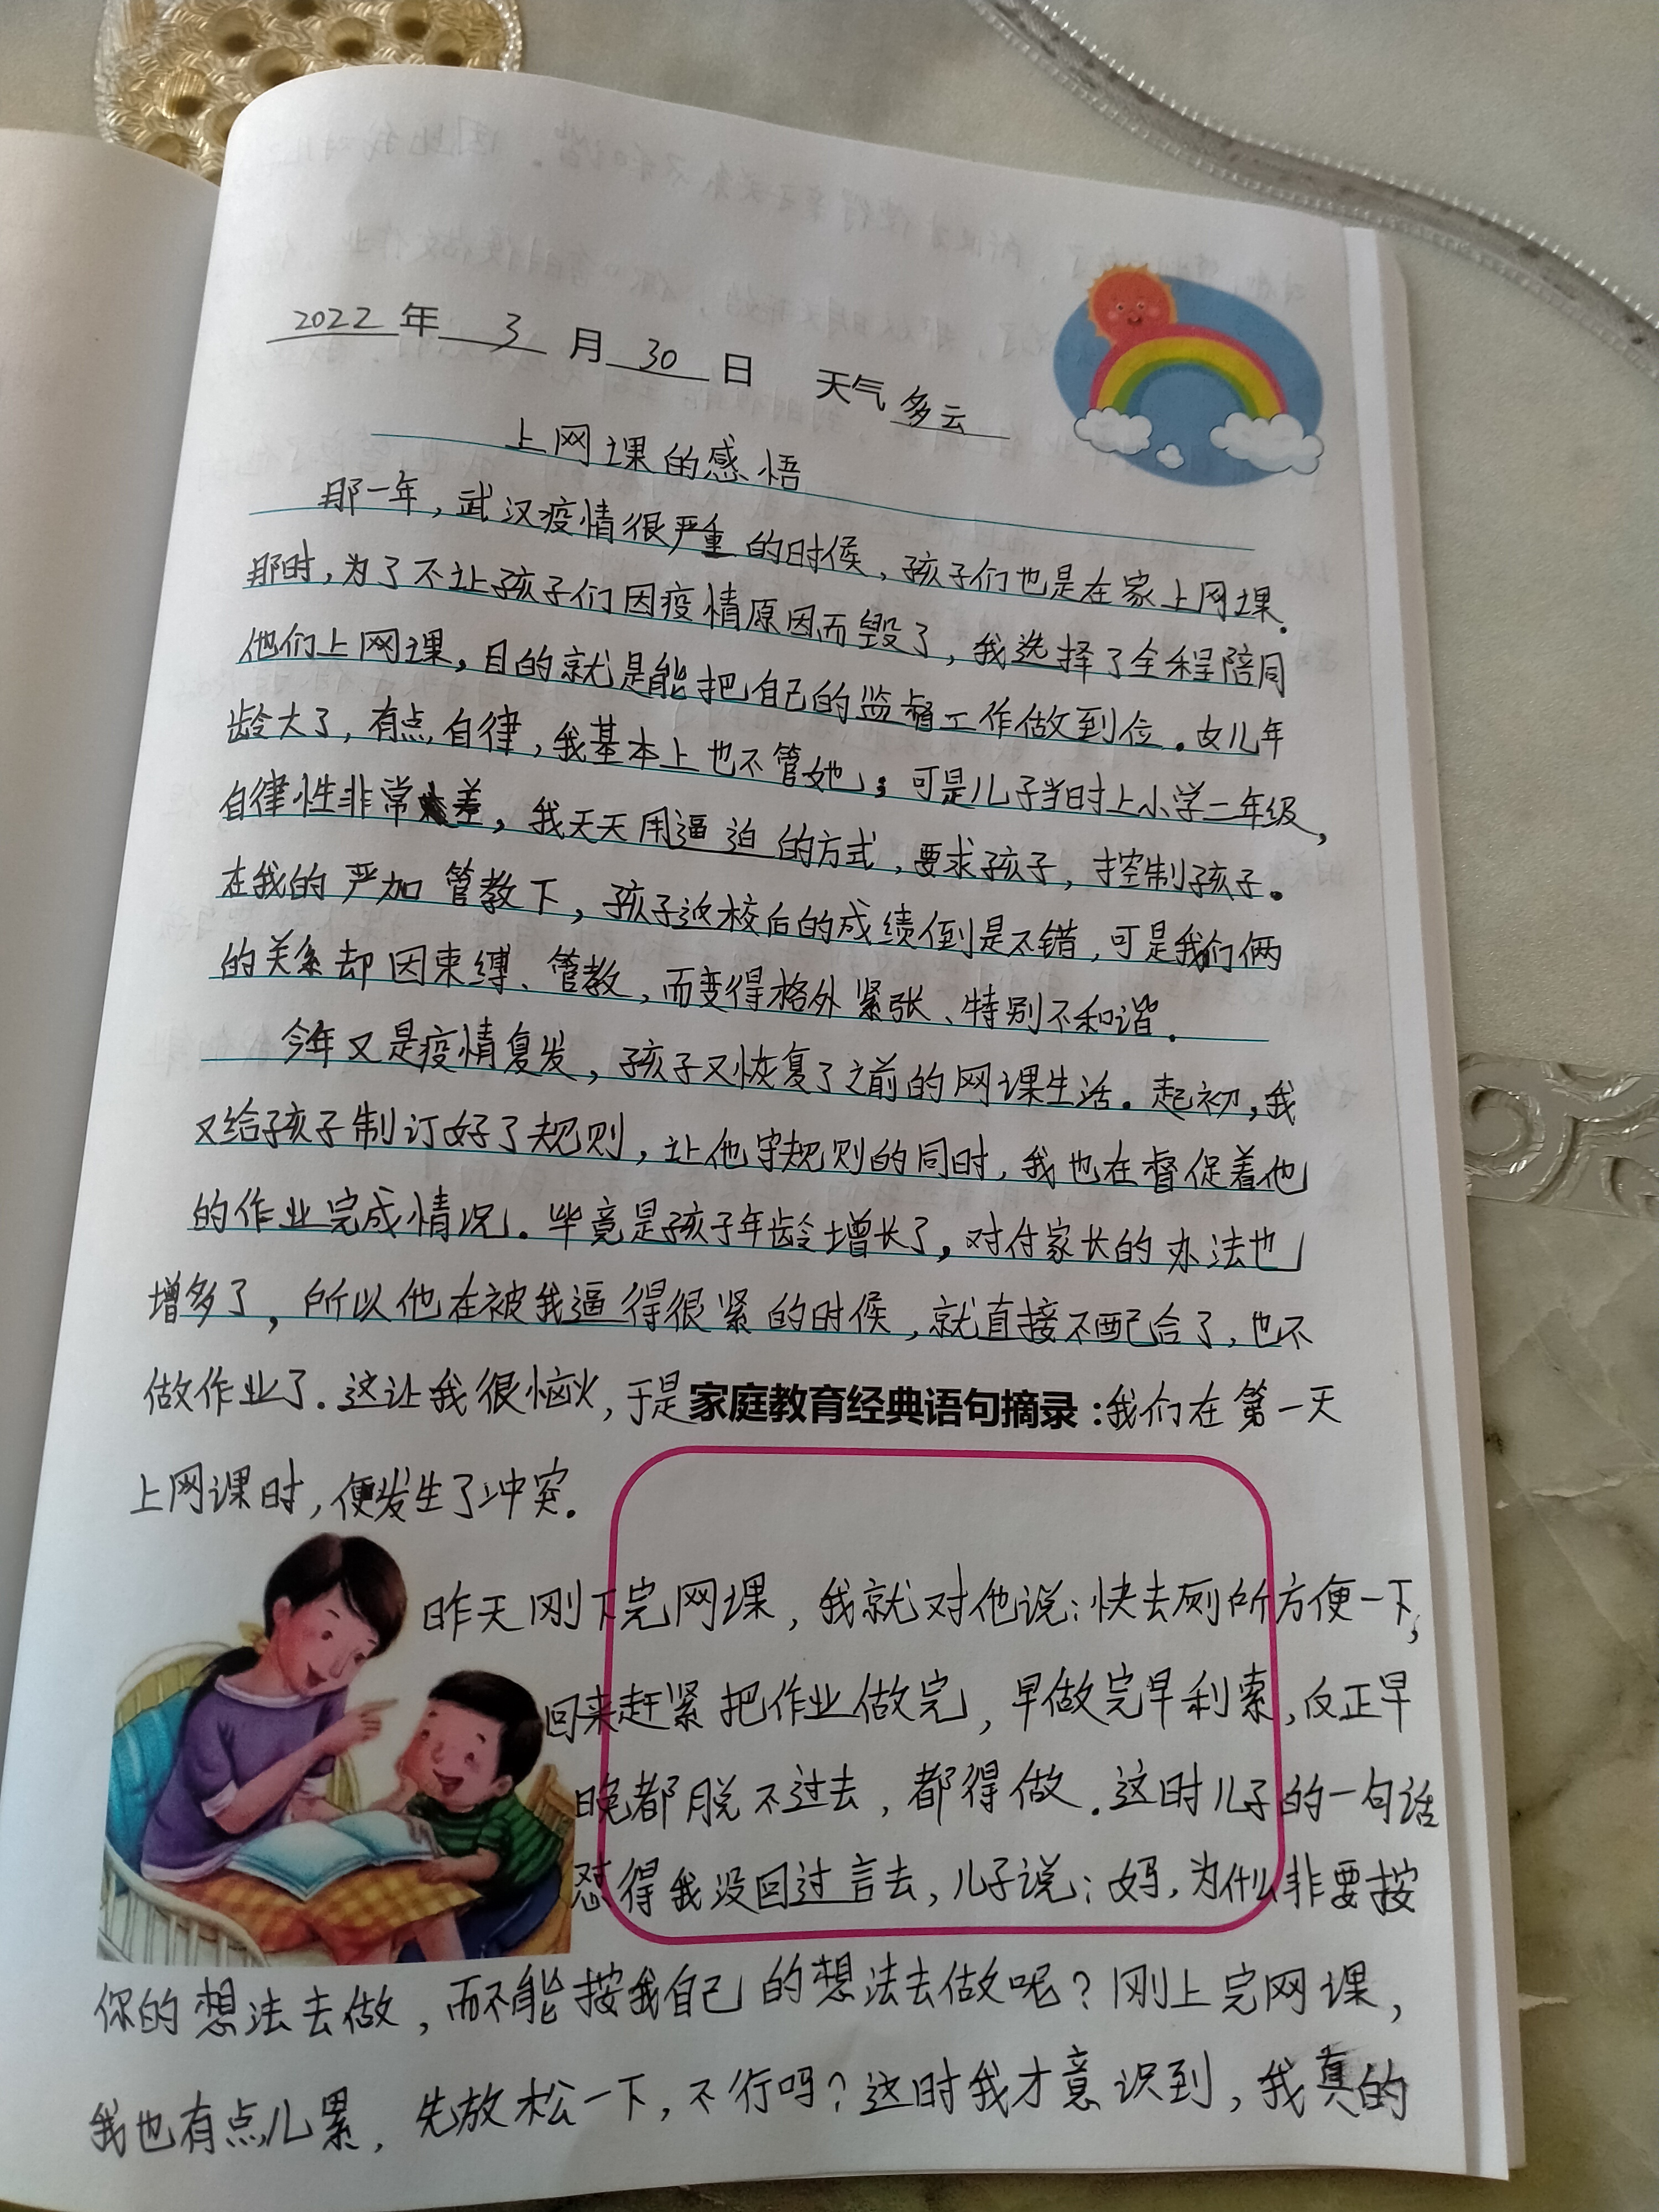 2022年3月30日 天气多云
上网课的感悟
那一年，武汉疫情很严重的时候，孩子们也是在家上网课.
那时，为了不让孩子们因疫情原因而毁了，我选择了全程陪同
他们上网课，目的就是能把自己的监督工作做到位。女儿年
龄大了，有点自律，我基本上也不管她；可是儿子当时上小学二年级，
自律性非常差，我天天用逼迫的方式，要求孩子，控制孩子。
在我的严加管教下，孩子返校后的成绩倒是不错，可是我们俩
的关系却因束缚、管教，而变得格外紧张、特别不和谐.
今年又是疫情复发，孩子又恢复了之前的网课生活。起初，我
又给孩子制订好了规则，让他守规则的同时，我也在督促着他
的作业完成情况。毕竟是孩子年龄增长了，对付家长的办法也
增多了，所以他在被我逼得很紧的时候，就直接不配合了，也不
做作业了.这让我很恼火，于是家庭教育经典语句摘录：我们在第一天
上网课时，便发生了冲突.
昨天刚下完网课，我就对他说：快去厕所方便一下，
回来赶紧把作业做完，早做完早利索，反正早
晚都脱不过去，都得做.这时儿子的一句话
怼得我没回过言去，儿子说：妈，为什么非要按
你的想法去做，而不能按我自己的想法去做呢？刚上完网课，
我也有点儿累，先放松一下，不行吗？这时我才意识到，我真的